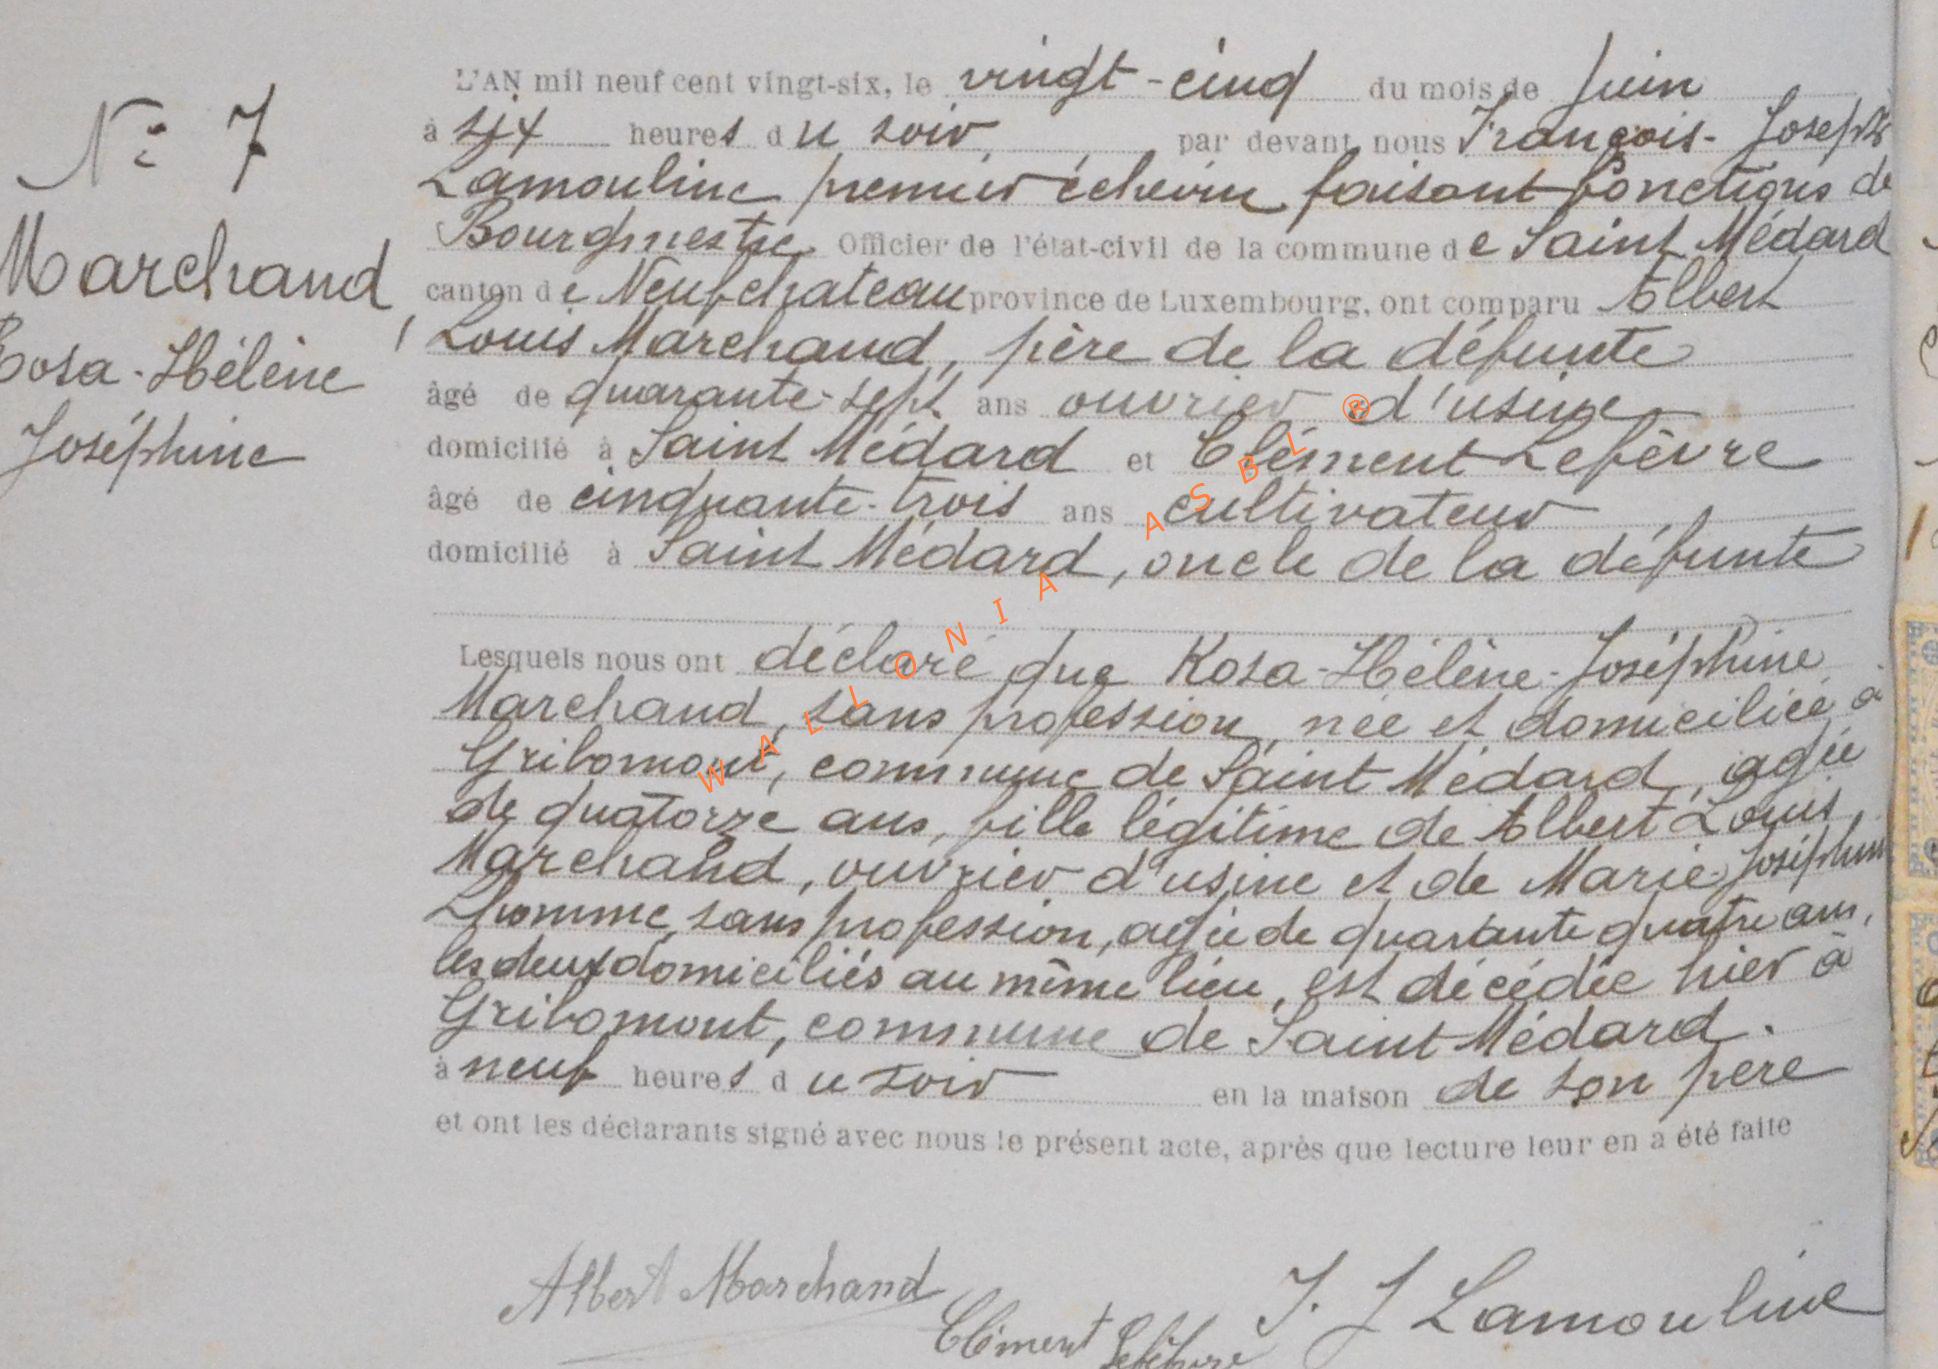 N° 7
Marchand,
Rosa-Hélène
Joséphine
L'AN mil neuf cent vingt-six, le vingt-cinq du mois de Juin
à six heures du soir, par devant nous François-Joseph
Lamouline premier échevin faisant fonctions de
Bourgmestre Officier de l'état-civil de la commune de Saint Médard
canton de Neufchateau province de Luxembourg, ont comparu Albert
Louis Marchand, père de la défunte
âgé de quarante-sept ans ouvrier d'usine
domicilié à Saint Médard et Clément Lefèvre
âgé de cinquante-trois ans cultivateur
domicilié à Saint Médard, oncle de la défunte
Lesquels nous ont déclaré que Rosa-Hélène-Joséphine
Marchand, sans profession, née et domiciliée à
Gribomont, commune de Saint Médard, agée
de quatorze ans, fille légitime de Albert Louis
Marchand, ouvrier d'usine et de Marie Joséphine
Lhomme, sans profession, agée de quarante quatre ans,
les deux domiciliés au même lieu, est décédée hier à
Gribomont, commune de Saint Médard.
à neuf heures du soir en la maison de son père
et ont les déclarants signé avec nous le présent acte, après que lecture leur en a été faite
Albert Marchand
Clément Lefèvre
F. J Lamouline
WALLONIA ASBL ®